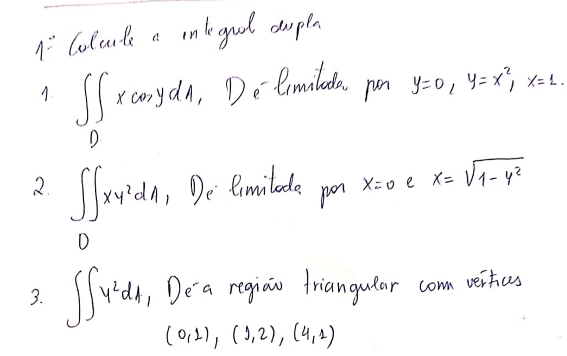 1º Calcule a integral dupla
1. ∬ x cos y dA, D é limitada por y=0, y=x², x=1.
D
2. ∬ xy² dA, D é limitada por x=0 e x= √1-y²
D
3. ∬ y² dA, D é a região triangular com vértices
(0,1), (1,2), (4,1)